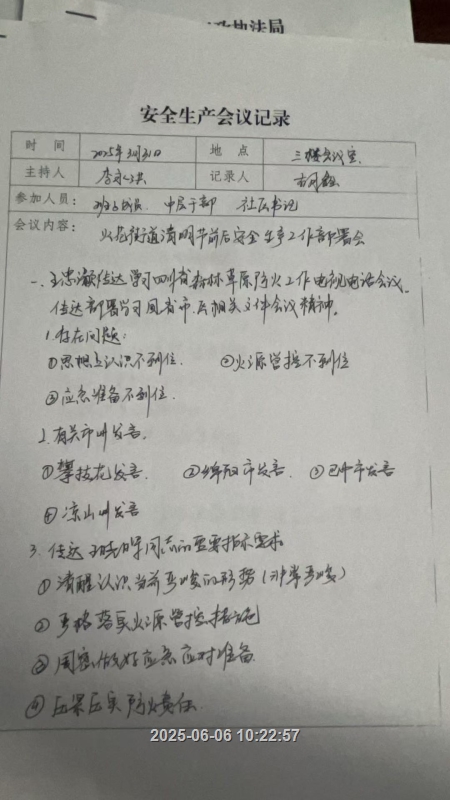 政执法局
安全生产会议记录
时 间 2025年3月31日 地 点 三楼会议室
主持人 李 记录人
参加人员： 班子成员 中层干部 社区书记
会议内容： 火花街道清明节前后安全生产工作部署会
一、王忠灏传达学习四川省森林草原防火工作电视电话会议。
传达部署学习国省市区相关文件会议精神。
1.存在问题：
①思想上认识不到位. ②火源管控不到位
③应急准备不到位.
2.有关市州发言.
①攀枝花发言. ②绵阳市发言. ③巴中市发言
④凉山州发言
3.传达 同志的重要指示要求
①清醒认识当前严峻的形势（非常严峻）
②严格落实火源管控措施
③周密做好应急应对准备.
④压紧压实防火责任.
2025-06-06 10:22:57